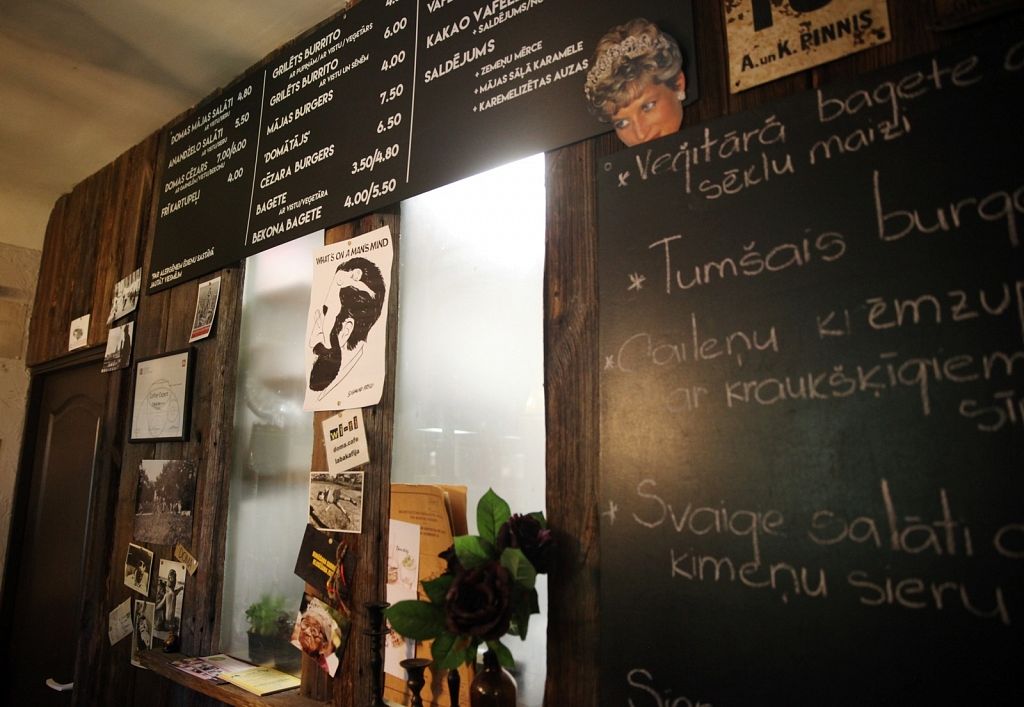 'DOMAS MĀJAS SALĀTI 4.80
AR VISTU/SIERU
ANANDŽELO SALĀTI 5.50
AR VISTU/SIERU
DOMAS CĒZARS 7.00/6.00
AR GARNELĒM/VISTU/BEKONU
FRĪ KARTUPEĻI 4.00
*PAR ALERGĒNIEM ĒDIENU SASTĀVĀ
JAUTĀT VIESMĪLIM
4.00
GRILĒTS BURRITO 6.00
AR PUPIŅĀM/AR VISTU/VEĢETĀRS
GRILĒTS BURRITO 4.00
AR VISTU UN SĒNĒM
MĀJAS BURGERS 7.50
'DOMĀTĀJS' 6.50
CĒZARA BURGERS 3.50/4.80
BAGETE
AR VISTU/VEĢETĀRA
BEKONA BAGETE 4.00/5.50
KAKAO VAFELE
+ SALDĒJUMS
SALDĒJUMS
+ ZEMEŅU MĒRCE
+ MĀJAS SĀĻĀ KARAMELE
+ KAREMELIZĒTAS AUZAS
A. un K. PINNIS
WHAT'S ON A MAN'S MIND
SIGMUND FREUD
wi-fi
doma.cafe
labakafija
* Veģitārā bagete
sēklu maizi
* Tumšais burge
* Caileņu krēmzup
ar kraukšķīgiem
* Svaige salāti
ķimeņu sieru